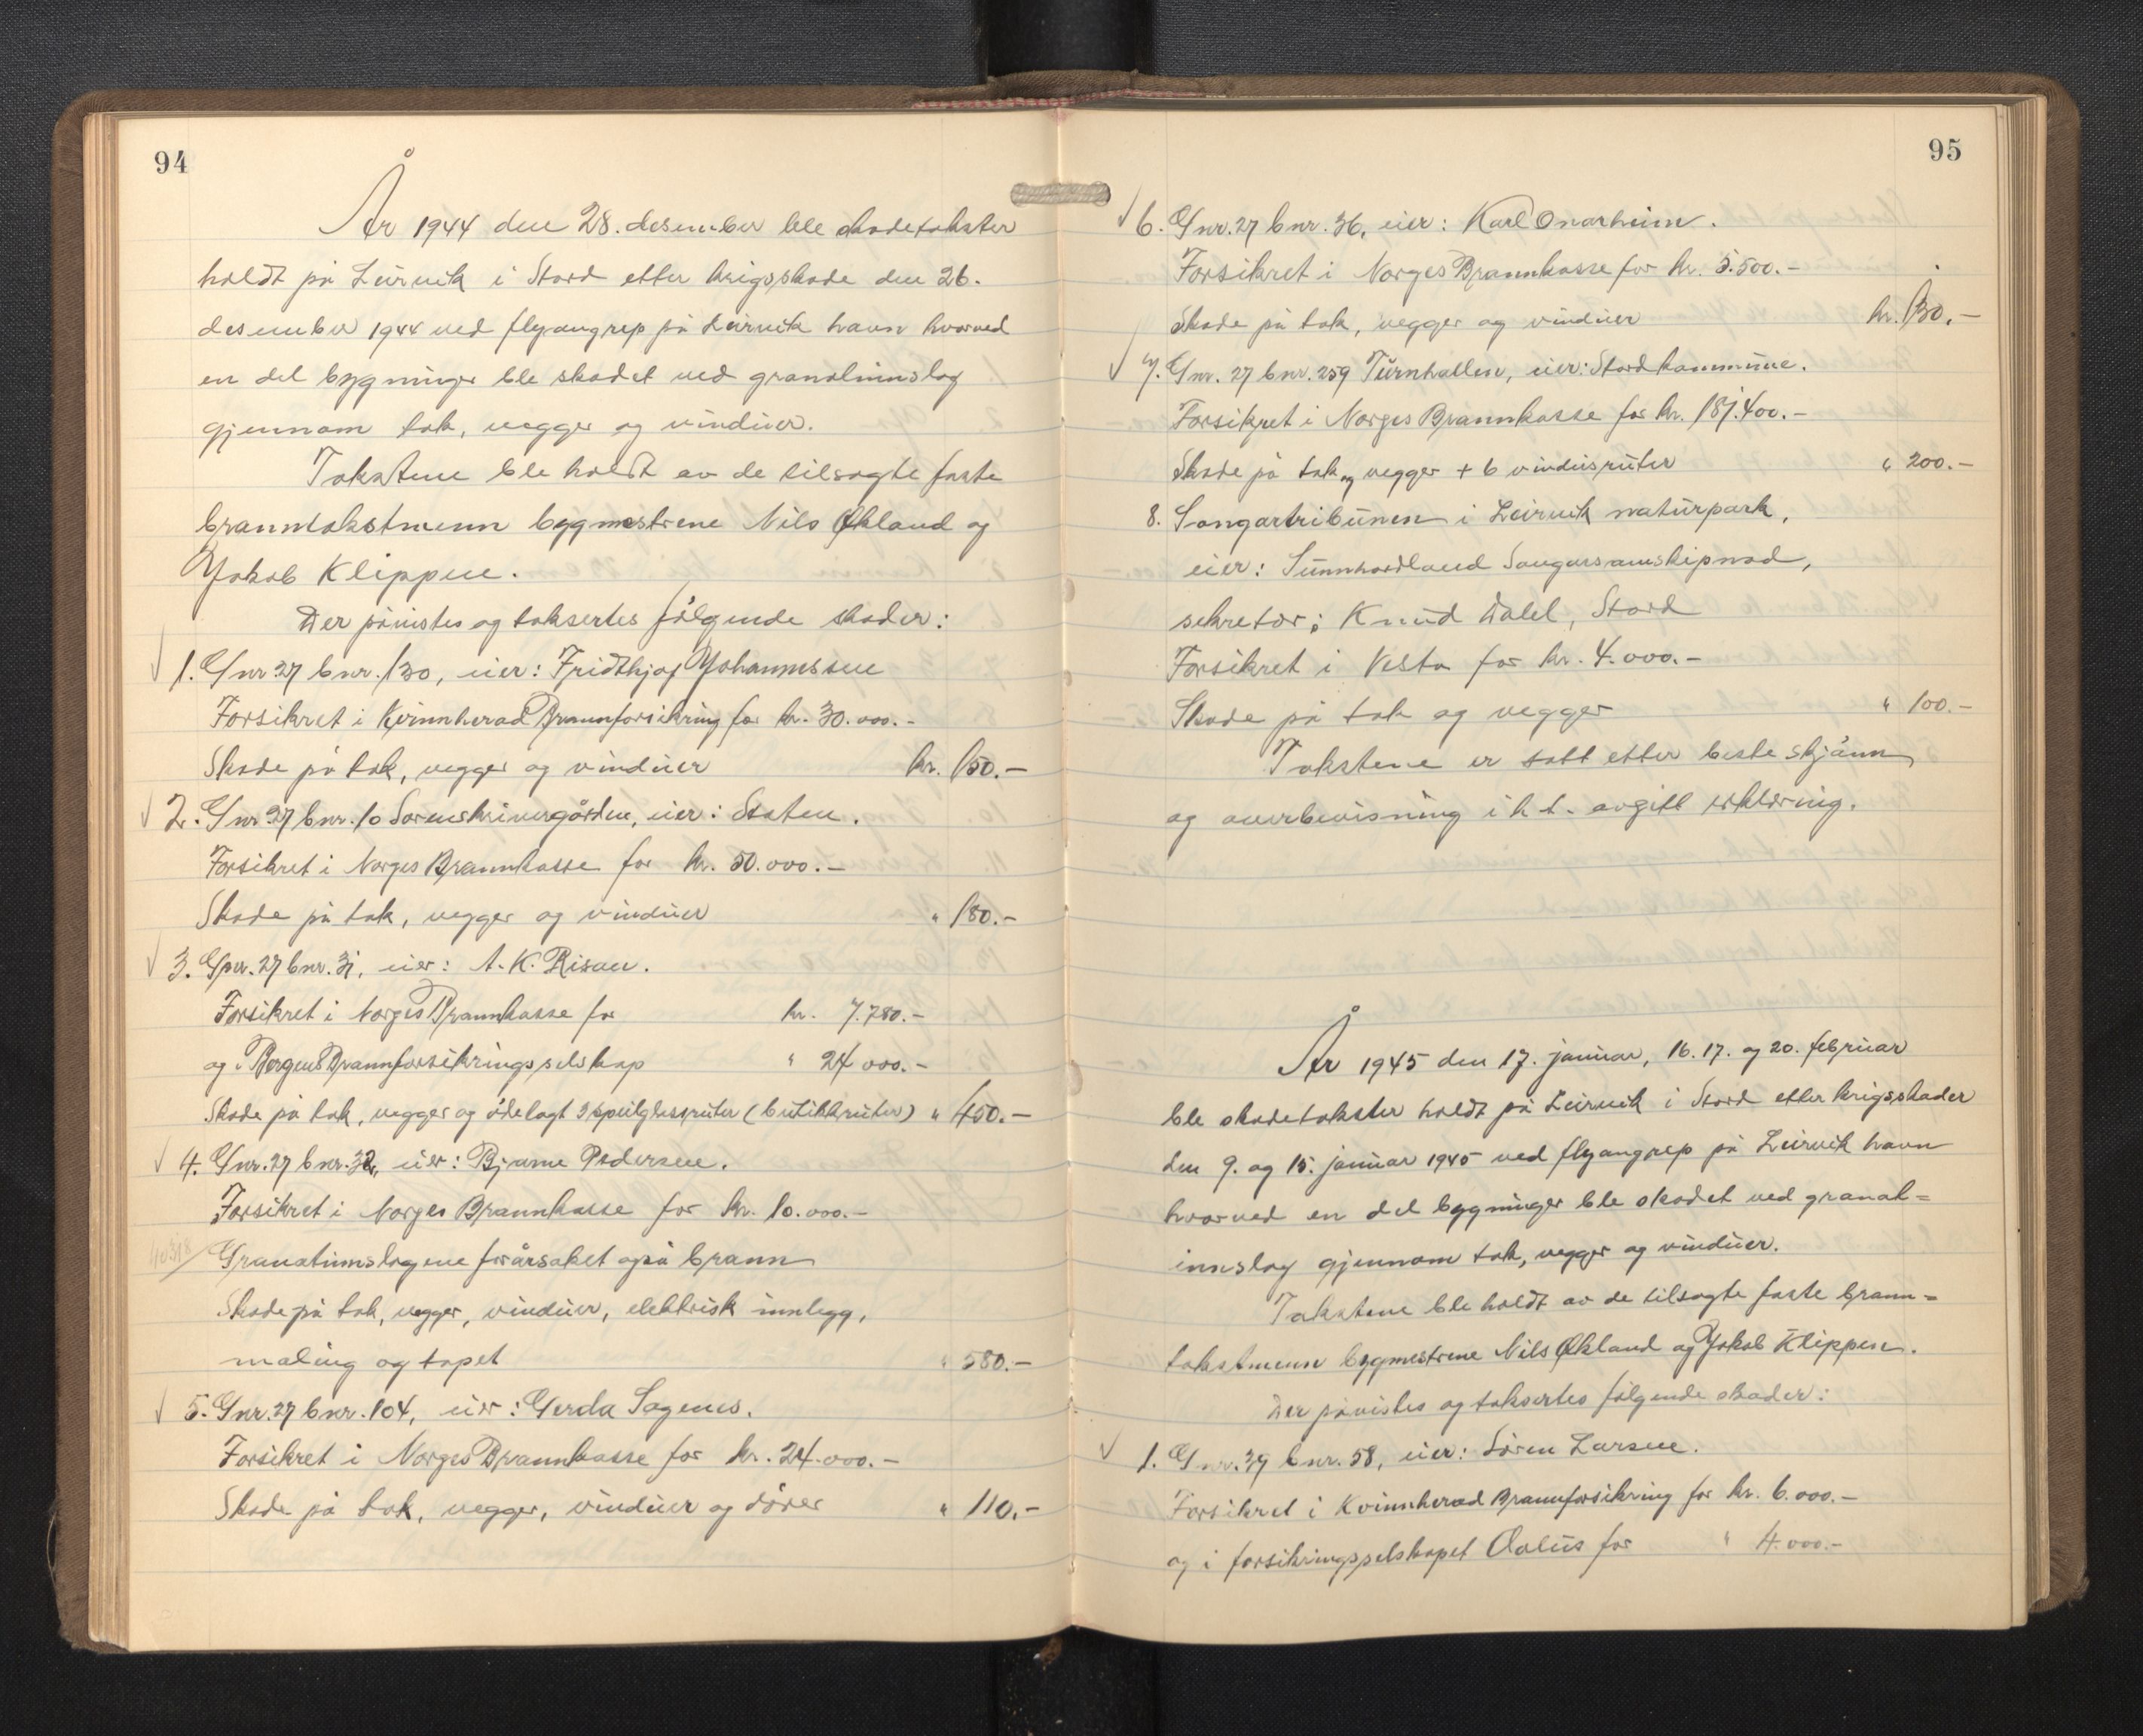 94
År 1944 den 28. desember ble skadetakster
holdt på Leirvik i Stord etter krigsskade den 26.
desember 1944 ved flyangrep på Leirvik havn hvorved
en del bygninger ble skadet ved granatinnslag
gjennom tak, vegger og vinduer.
Takstene ble holdt av de tilsagte faste
branntakstmenn bygmestrene Nils Økland og
Jakob Klippen.
Der påvistes og taksertes følgende skader:
1. Gnr. 27 bnr. 130, eier: Fridthjof Johannessen
Forsikret i Kvinnherad Brannforsikring for kr. 30.000.-
Skade på tak, vegger og vinduer kr. 150.-
2. Gnr. 27 bnr. 10 Sorenskrivergården, eier: Staten.
Forsikret i Norges Brannkasse for kr. 50.000.-
Skade på tak, vegger og vinduer " 180.-
3. Gnr. 27 bnr. 31, eier: A. K. Risan.
Forsikret i Norges Brannkasse for kr. 7.780.-
og i Bergens Brannforsikringsselskap " 24 000.-
Skade på tak, vegger og ødelagt 3 speilglessruter (butikkruter) " 450.-
4. Gnr. 27 bnr. 32, eier: Bjarne Pedersen.
Forsikret i Norges Brannkasse for kr. 10.000.-
Granatinnslagene forårsaket også brann
Skade på tak, vegger, vinduer, elektrisk innlegg,
maling og tapet " 580.-
5. Gnr. 27 bnr. 104, eier: Gerda Sagenes.
Forsikret i Norges Brannkasse for kr. 24.000.-
Skade på tak, vegger, vinduer og dører " 110.-
95
6. Gnr. 27 bnr. 36, eier: Karl Onarheim.
Forsikret i Norges Brannkasse for kr. 5.500.-
Skade på tak, vegger og vinduer kr. 130.-
7. Gnr. 27 bnr. 259 Turnhallen, eier: Stord kommune.
Forsikret i Norges Brannkasse for kr. 187.400.-
Skade på tak og vegger + 6 vindusruter " 200.-
8. Sangartribunen i Leirvik naturpark,
eier: Sunnhordland Sangarsamskipnad,
sekretær: Knud Dalel, Stord
Forsikret i Vesta for kr. 4.000.-
Skade på tak og vegger " 100.-
Takstene er satt etter beste skjønn
og overbevisning i h. t. avgitt erklæring.
År 1945 den 17. januar, 16. 17. og 20. februar
ble skadetakster holdt på Leirvik i Stord etter krigsskader
den 9. og 15. januar 1945 ved flyangrep på Leirvik havn
hvorved en del bygninger ble skadet ved granat=
innslag gjennom tak, vegger og vinduer.
Takstene ble holdt av de tilsagte faste brann=
takstmenn bygmestrene Nils Økland og Jakob Klippen.
Der påvistes og taksertes følgende skader:
1. Gnr. 39 bnr. 58, eier: Søren Larsen.
Forsikret i Kvinnherad Brannforsikring for kr. 6.000.-
og i forsikringsselskapet Æolus for " 4.000.-